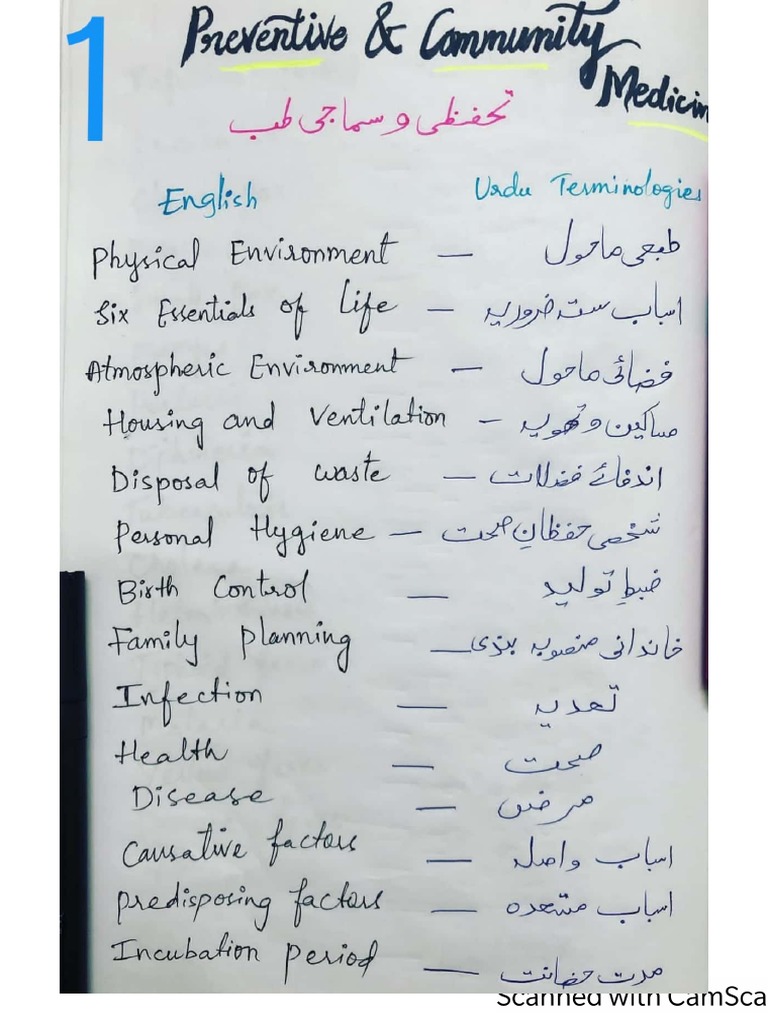 1
Preventive & Community
Medicin
تحفظی و سماجی طب
English Urdu Terminologies
Physical Environment — طبعی ماحول
Six Essentials of Life — اسباب ستہ ضروریہ
Atmospheric Environment — فضائی ماحول
Housing and Ventilation — مساکین و تہویہ
Disposal of waste — اندفائے فضلات
Personal Hygiene — شخصی حفظانِ صحت
Birth Control — ضبطِ تولید
Family planning — خاندانی منصوبہ بندی
Infection — تعدیہ
Health — صحت
Disease — مرض
Causative factors — اسباب واصلہ
Predisposing factors — اسباب مستعدہ
Incubation Period — مدت حضانت
Scanned with CamSca